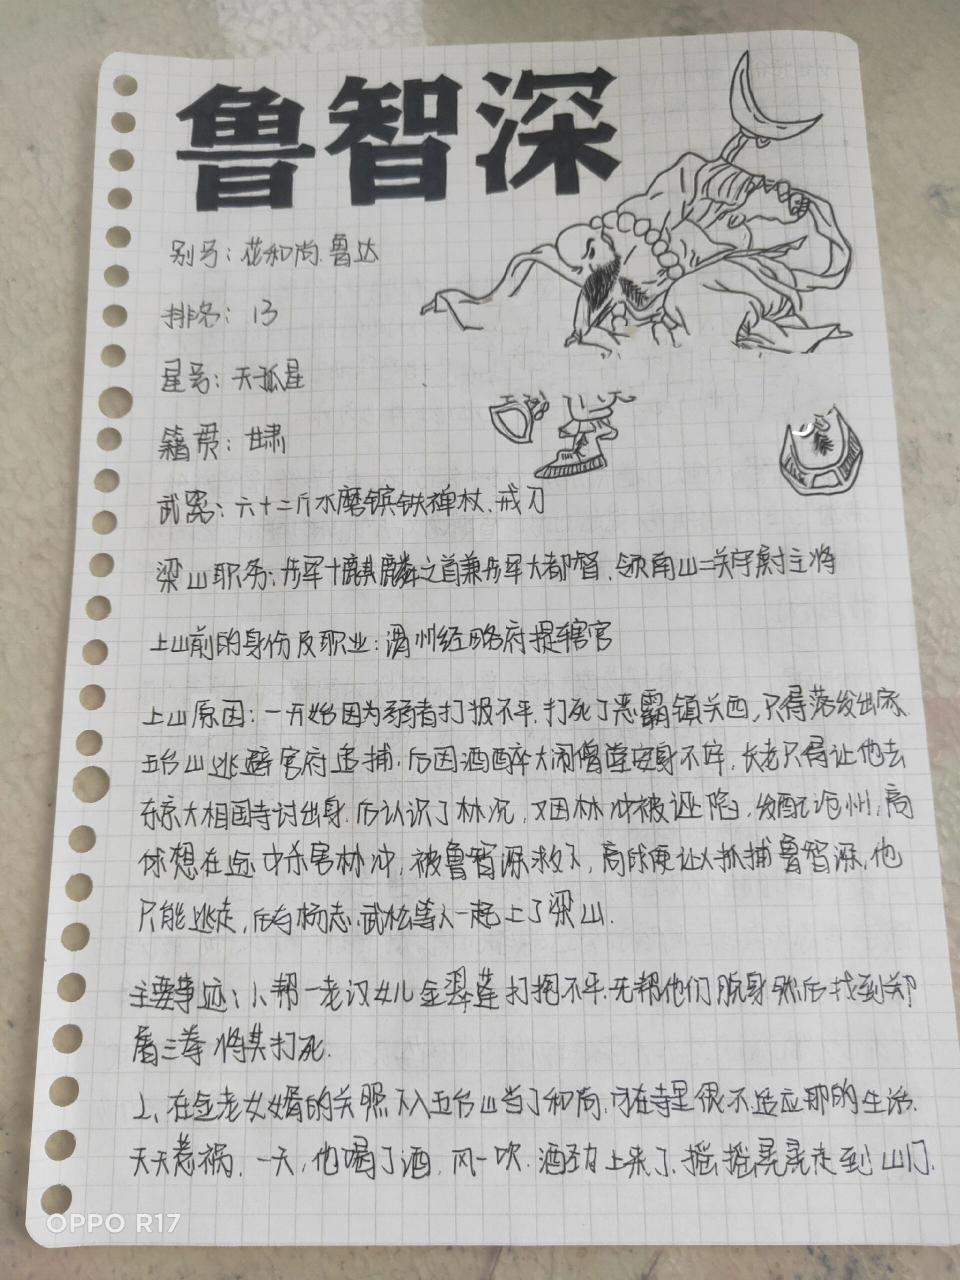 鲁智深
别号：花和尚、鲁达
排名：13
星号：天孤星
籍贯：甘肃
武器：六十二斤水磨镔铁禅杖、戒刀
梁山职务：步军十麒麟之首兼步军大都督、领南山二关守尉主将
上山前的身份及职业：渭州经略府提辖官
上山原因：一开始因为弱者打报不平，打死了恶霸镇关西，只得落发出家
五台山逃避官府追捕，后因酒醉大闹僧堂安身不牢，长老只得让他去
东京大相国寺讨出身，后认识了林冲，又因林冲被诬陷，发配沧州，高
俅想在途中杀害林冲，被鲁智深救下，高俅便让人抓捕鲁智深，他
只能逃走，后与杨志、武松等人一起上了梁山.
主要事迹：1、帮一老汉女儿金翠莲打抱不平，先帮他们脱身然后找到郑
屠三拳将其打死.
2、在金老女婿的关照下入五台山当了和尚，可在寺里很不适应那的生活，
天天惹祸，一天，他喝了酒，风一吹，酒劲上来了，摇摇晃晃走到山门，
OPPO R17